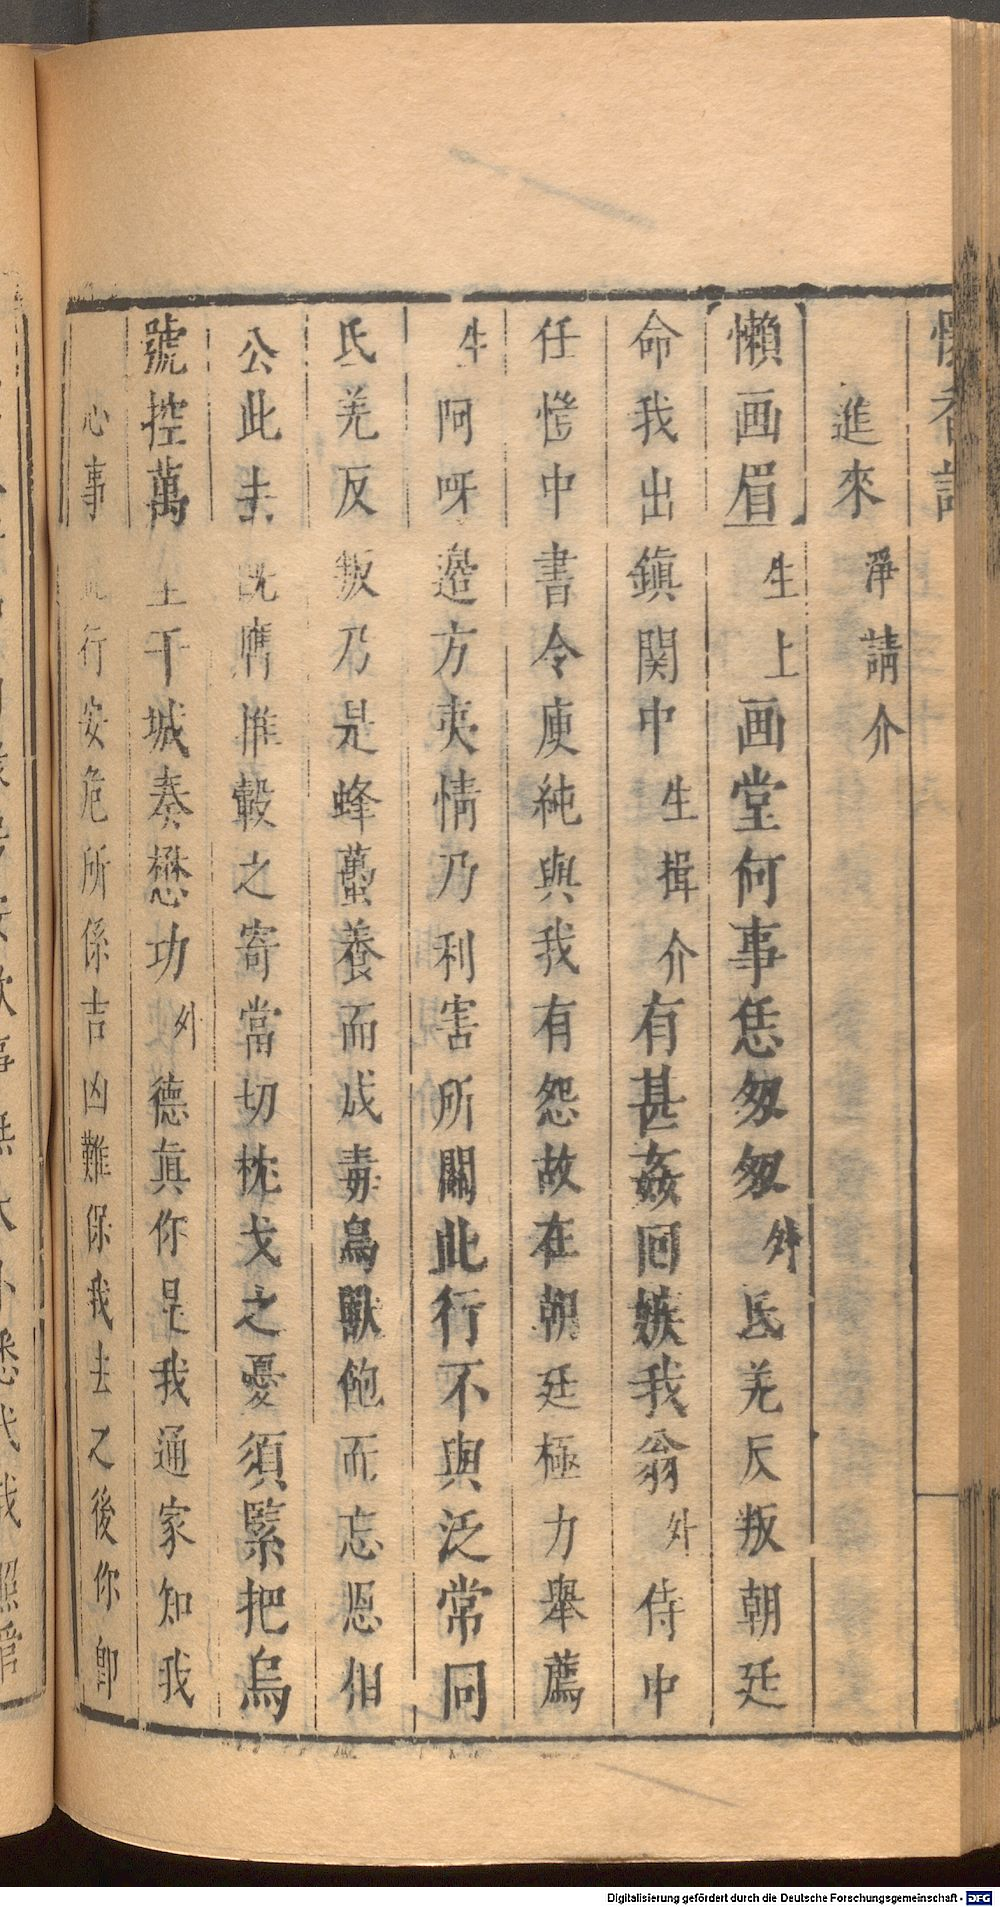 懷香記
進來淨請介
懶画眉生上画堂何事恁匆匆外氐羌反叛朝廷
命我出鎮関中生揖介有甚姦回嫉我翁外侍中
任愷中書令庾純與我有怨故在朝廷極力舉薦
生阿呀邉方夷情乃利害所關此行不與泛常同
氐羌反叛乃是蜂蠆養而成毒鳥獸飽而忘恩相
公此去既膺推轂之寄當切枕戈之憂須緊把烏
號控萬里干城奏懋功外德真你是我通家知我
心事此行安危所係吉凶難保我去之後你卽
Digitalisierung gefördert durch die Deutsche Forschungsgemeinschaft - DFG